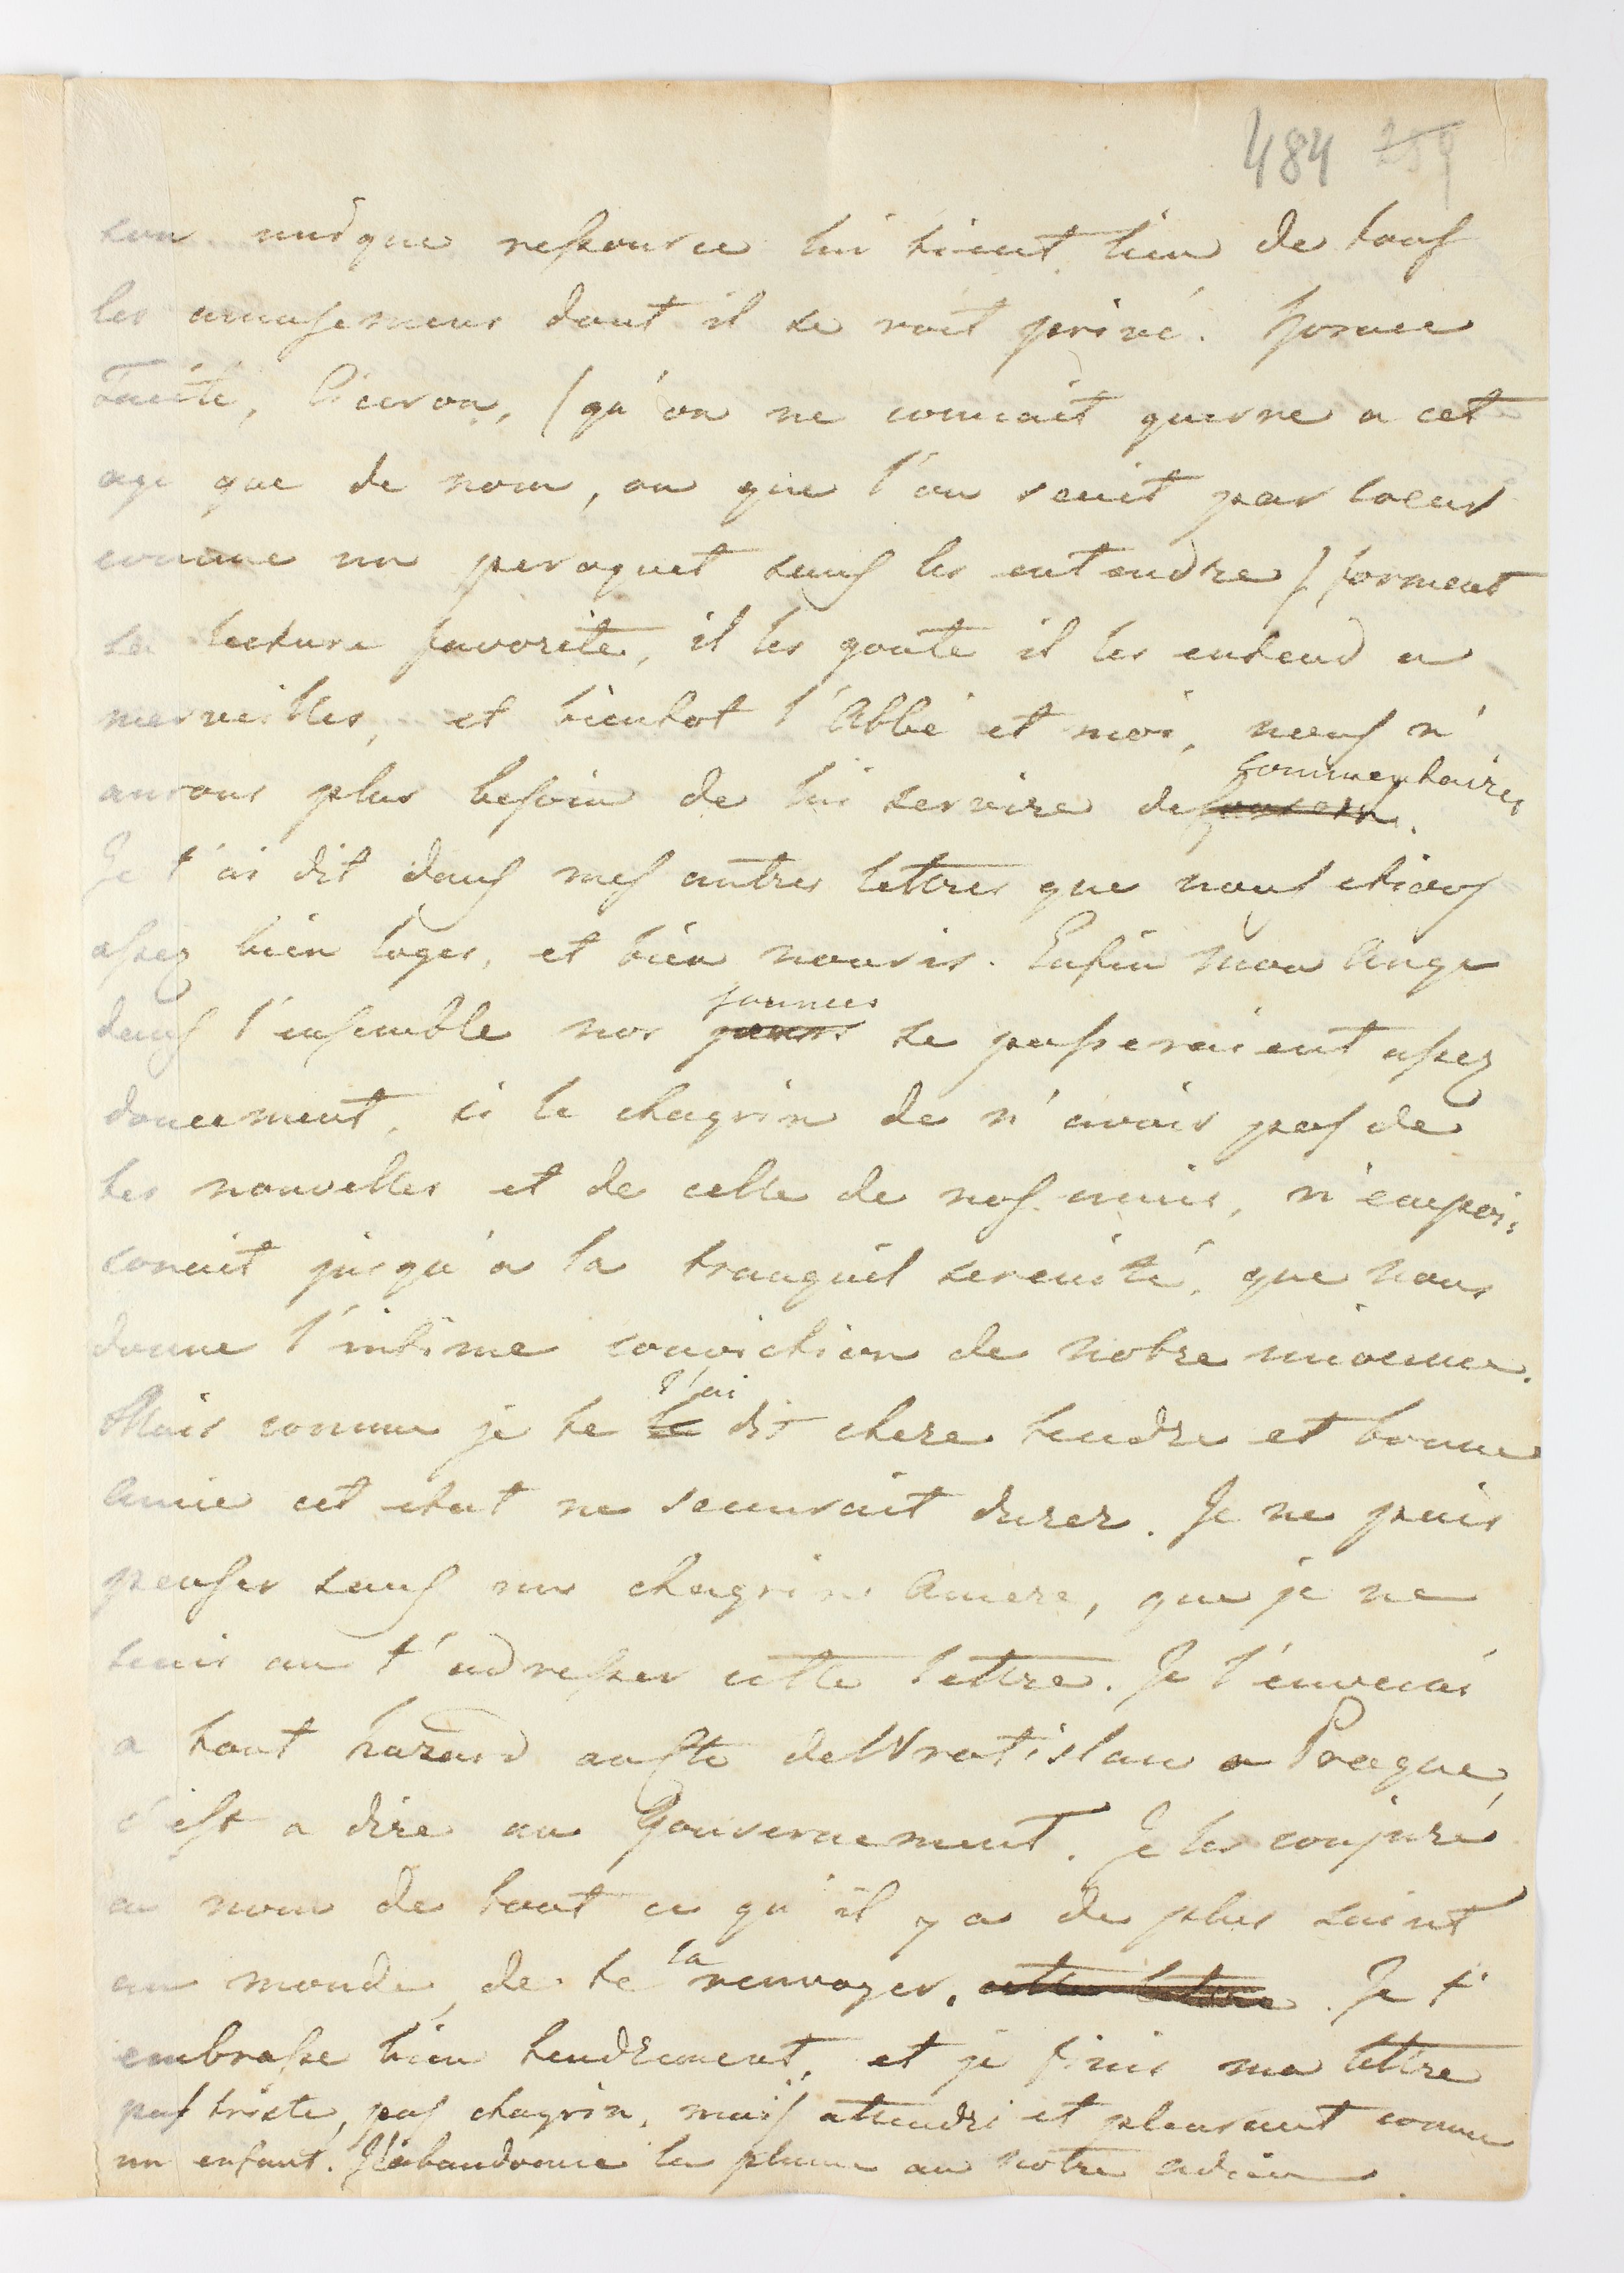 484 259
son unique ressource lui tient lieu de tous
les amusemens dont il se voit privé. Horace
Tacite, Ciceron, (qu'on ne connait guerre a cet
age que de nom, ou que l'on scait par coeur
comme un peroquet sans les entendre) forment
sa lecture favorite, il les goute il les entend a
merveilles, et bientot l'Abbé et moi, nous n'
aurons plus besoin de lui servire de commentaires.
Je t'ai dit dans mes autres lettres que nous etions
assez bien loges, et bien nouris. Enfin mon Ange
dans l'ensemble nos jours journees se passeraient assez
doucement, si le chagrin de n'avoir pas de
tes nouvelles et de celle de nos amis, n'empoi-
sonait jusqu'a la tranquil serenité, que nous
donne l'intime conviction de notre innocence.
Mais comme je te le l'ai dit chere tendre et bonne
Amie cet etat ne scaurait durer. Je ne puis
penser sans un chagrin Amere, que je ne
scais ou t'adresser cette lettre. Je l'envoiai
a tout hazard au Cte de Wratislau a Prague,
c'est a dire au Gouvernement. Je les conjure
au nom de tout ce qu'il y a de plus saint
au monde, de te la renvoyer, cette lettre. Je t'
embrasse bien tendrement, et je finis ma lettre
pas triste, pas chagrin, mais attendri et pleurant comme
un enfant. J'abandonne la plume au notre adieu.